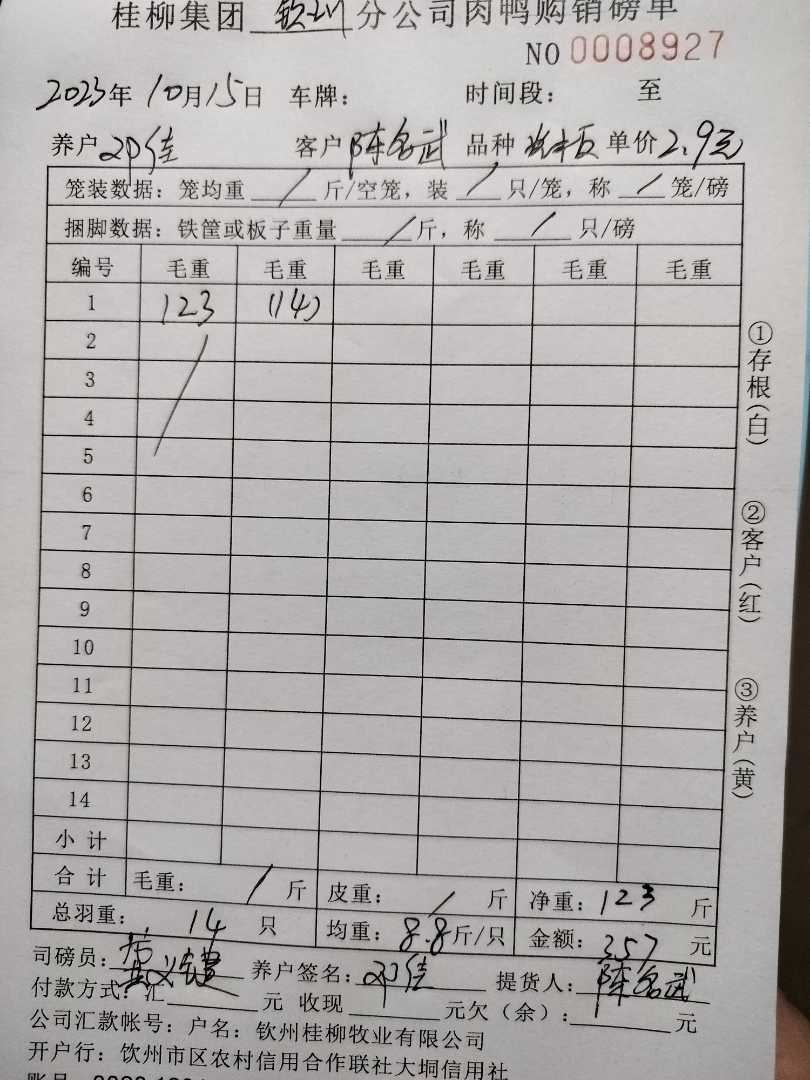 桂柳集团 钦州 分公司肉鸭购销磅单
NO 0008927
2023年 10月15日 车牌： 时间段： 至
养户 邓佳 客户 陈名武 品种 单价 2.9元
笼装数据：笼均重 / 斤/空笼，装 / 只/笼，称 / 笼/磅
捆脚数据：铁筐或板子重量 / 斤，称 / 只/磅
编号 毛重 毛重 毛重 毛重 毛重 毛重
1 123 (14)
2
3
4
5
6
7
8
9
10
11
12
13
14
小 计
合 计 毛重： / 斤 皮重： / 斤 净重：123 斤
总羽重： 14 只 均重：8.8斤/只 金额：357 元
司磅员： 养户签名：邓佳 提货人：陈名武
付款方式：汇 元 收现 元欠（余）： 元
公司汇款帐号：户名：钦州桂柳牧业有限公司
开户行：钦州市区农村信用合作联社大垌信用社
①存根（白）
②客户（红）
③养户（黄）